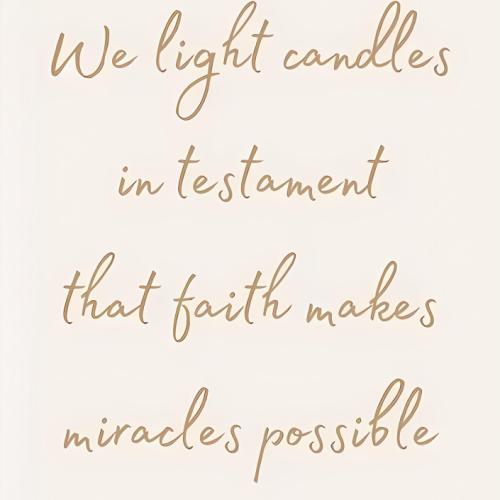 We light candles
in testament
that faith makes
miracles possible